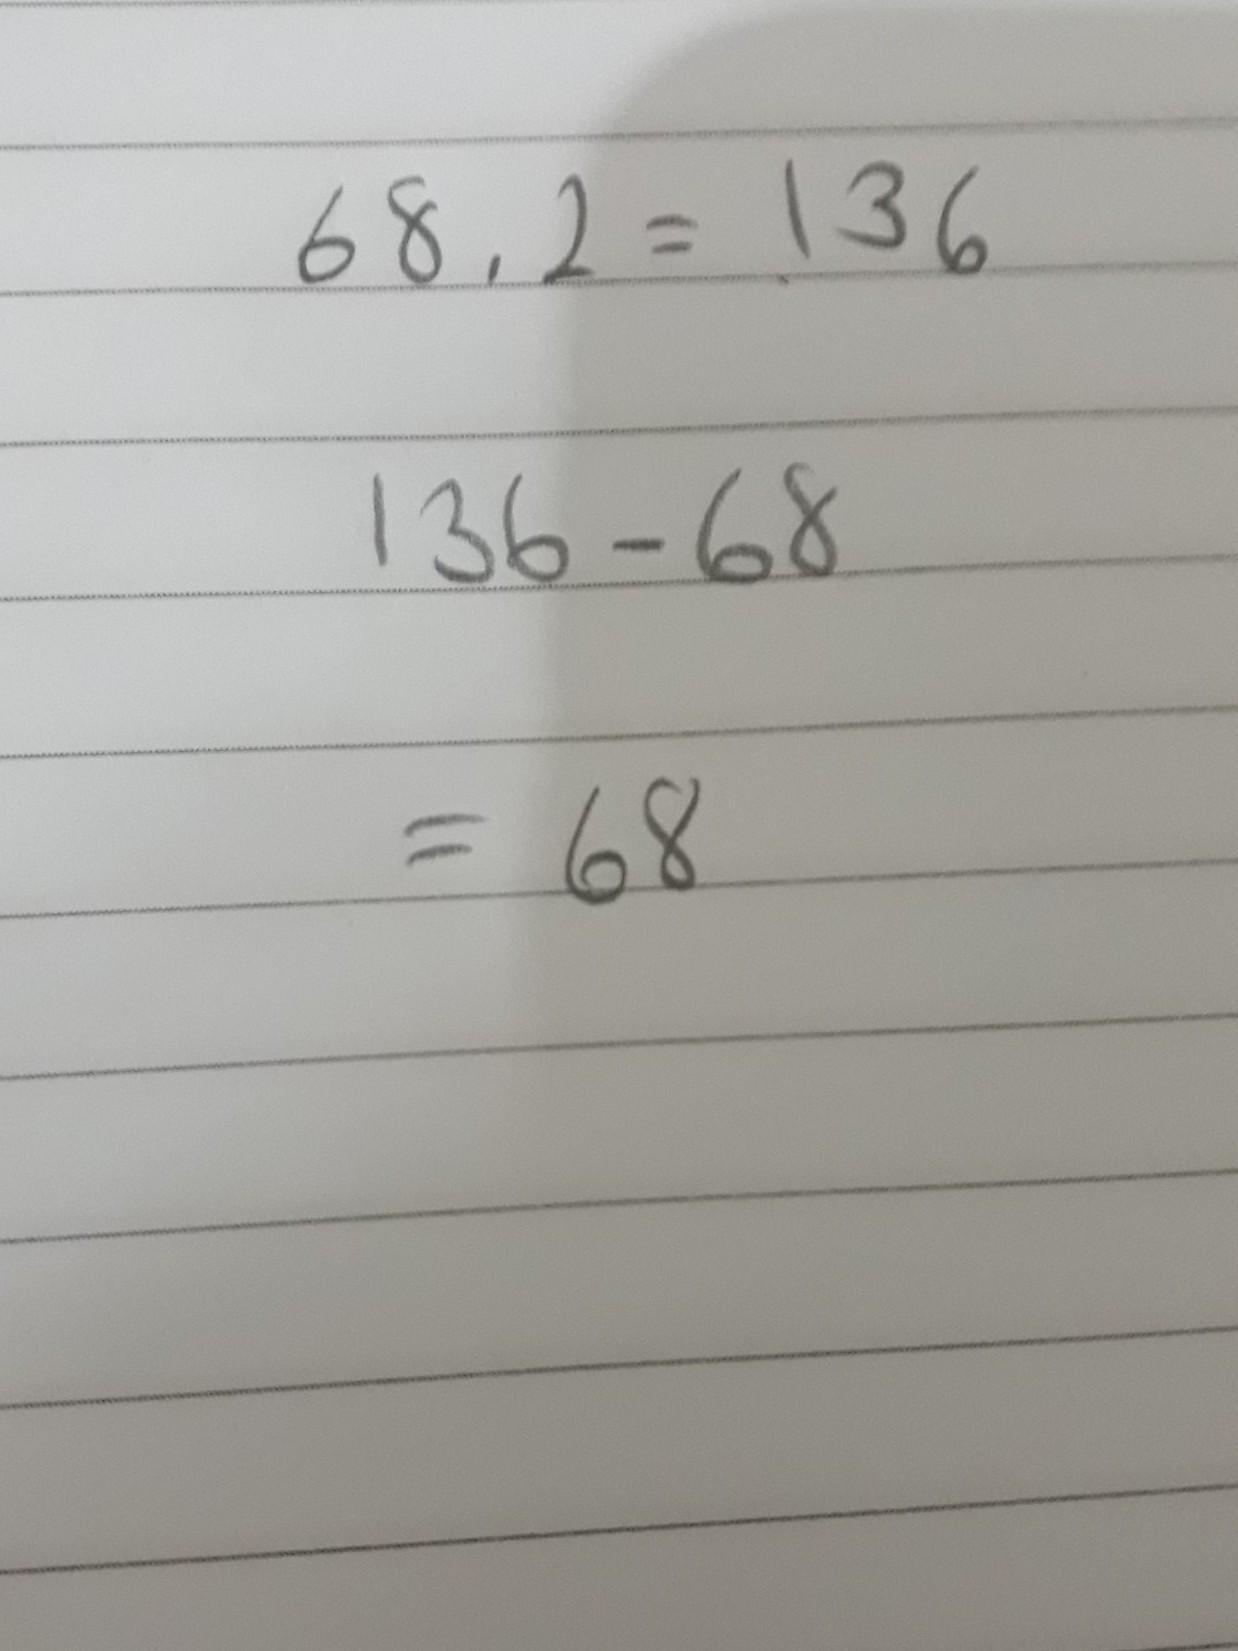 68.2 = 136
136 - 68
= 68